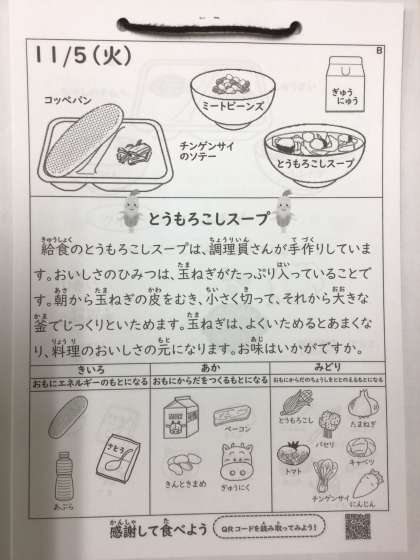 11/5(火)
B
コッペパン
ミートビーンズ
ぎゅう
にゅう
チンゲンサイ
のソテー
とうもろこしスープ
とうもろこしスープ
給食のとうもろこしスープは、調理員さんが手作りしていま
す。おいしさのひみつは、玉ねぎがたっぷり入っていることで
す。朝から玉ねぎの皮をむき、小さく切って、それから大きな
釜でじっくりといためます。玉ねぎは、よくいためるとあまくな
り、料理のおいしさの元になります。お味はいかがですか。
きいろ
あか
みどり
おもにエネルギーのもとになる
おもにからだをつくるもとになる
おもにからだのちょうしをととのえるもとになる
とうもろこし
たまねぎ
ベーコン
パセリ
さとう
トマト
キャベツ
きんときまめ
ぎゅうにく
チンゲンサイ
にんじん
あぶら
感謝して食べよう
QRコードを読み取ってみよう!